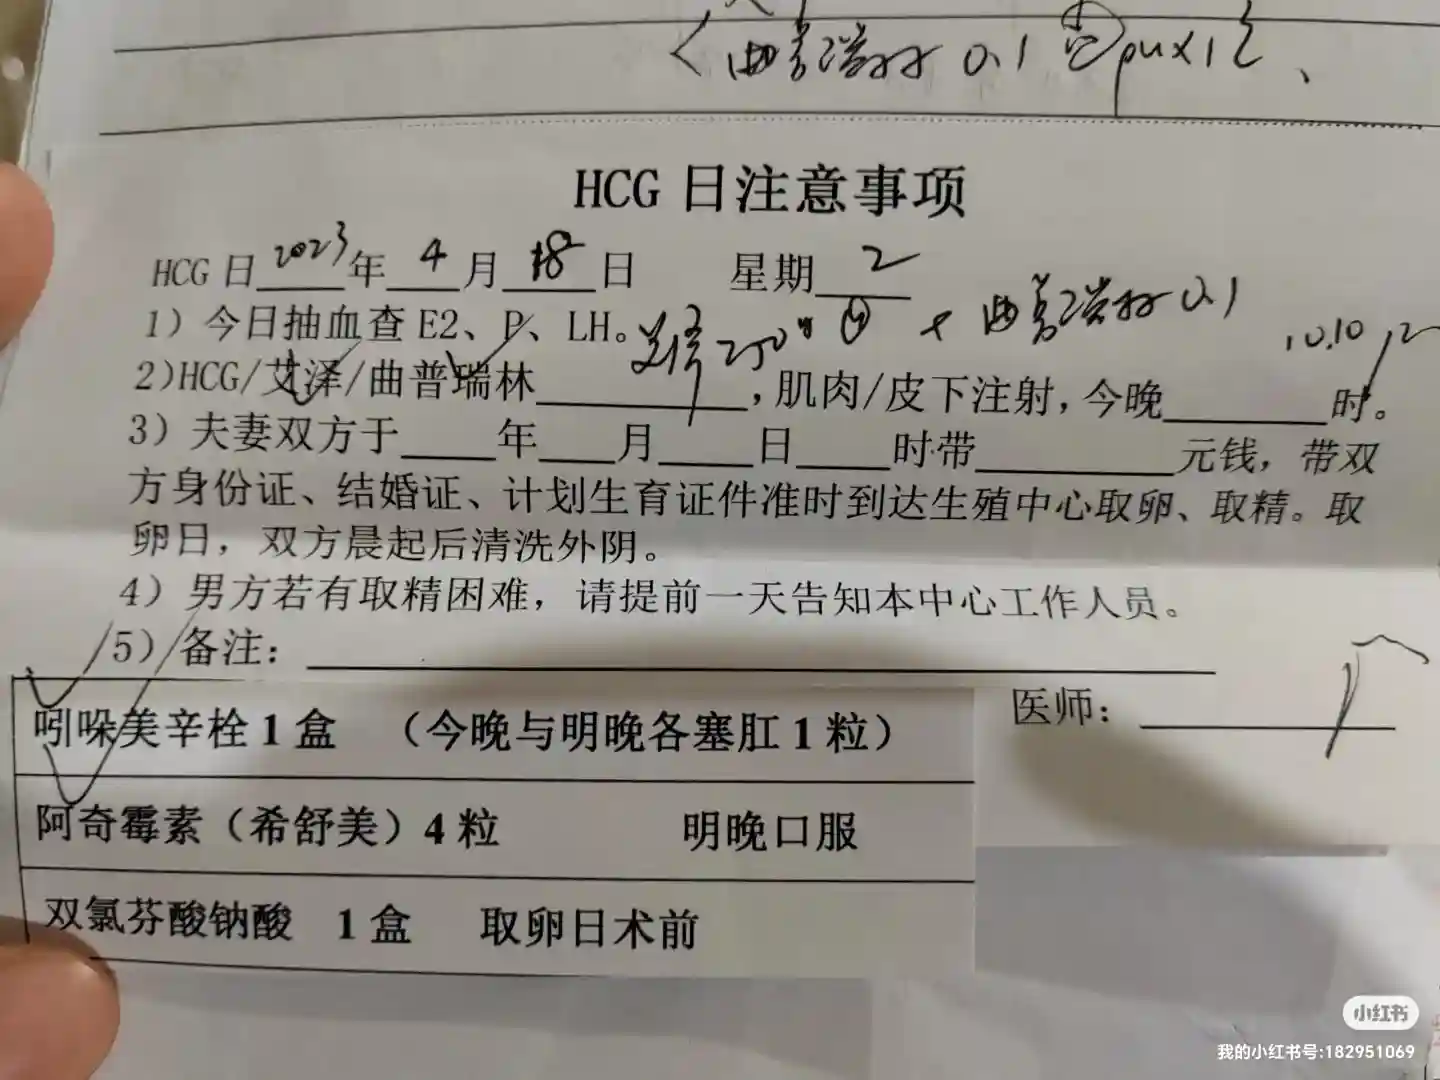 曲普瑞林 0.1
HCG 日注意事项
HCG 日 2023 年 4 月 18 日 星期 2
1）今日抽血查 E2、P、LH。
艾泽 250ug + 曲普瑞林 0.1
2)HCG/艾泽/曲普瑞林，肌肉/皮下注射，今晚 10.10 时。
3）夫妻双方于 年 月 日 时带 元钱，带双
方身份证、结婚证、计划生育证件准时到达生殖中心取卵、取精。取
卵日，双方晨起后清洗外阴。
4）男方若有取精困难，请提前一天告知本中心工作人员。
5）备注：
医师：
吲哚美辛栓 1 盒 （今晚与明晚各塞肛 1 粒）
阿奇霉素（希舒美）4 粒 明晚口服
双氯芬酸钠酸 1 盒 取卵日术前
小红书
我的小红书号:182951069